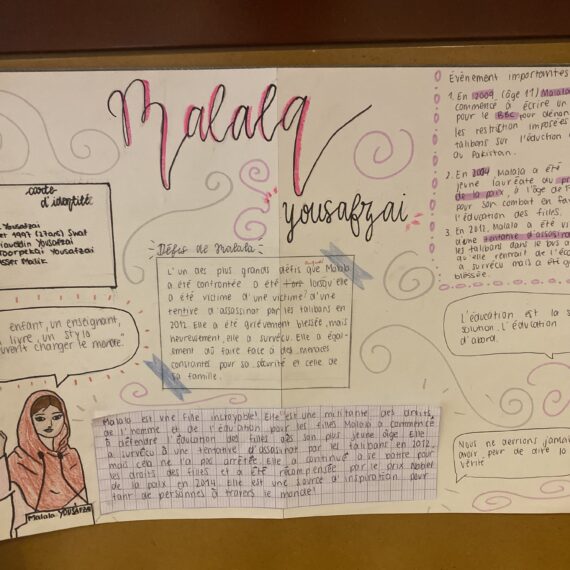 Malala
yousafzai
carte
d'identité
Yousafzai
1997 (27ans) Swat
Ziaueddin Yousafzai
Toorpekai Yousafzai
Asser Malik
enfant, un enseignant,
livre, un stylo
peuvent changer le monde."
Défis de Malala
L'un des plus grands défis que Malala
a été confrontée a été lorsqu'elle
a été victime d'une victime d'une
tentive d'assassinat par les talibans en
2012. Elle a été grièvement blessée, mais
heureusement, elle a survécu. Elle a égale-
ment dû faire face à des menaces
constantes pour sa sécurité et celle de
sa famille.
Malala est une fille incroyable! Elle est une militante des droits
de l'homme et de l'éducation pour les filles Malala a commencé
à défendre l'éducation des filles dès son plus jeune âge. Elle
a survécu à une tentative d'assassinat par les talibans en 2012,
mais cela ne l'a pas arrêtée. Elle a continué à se battre pour
les droits des filles et a été récompensée par le prix Nobel
de la paix en 2014. Elle est une source d'inspiration pour
tant de personnes à travers le monde!
Malala YOUSAFZAI
Évènement importantes
1. En 2009, (âge 11) Malala
commencé à écrire un
pour le BBC pour dénon
les restriction imposées
talibans sur l'éduction
au Pakistan.
2. En 2014 Malala a été
jeune lauréate du pr
de la paix, à l'âge de
pour son combat en fav
l'éducation des filles.
3. En 2012, Malala a été vi
d'une tentative d'assasina
les talibans dans le bus a
qu'elle rentrait de l'éco
a survécu mais a été g
blessée.
L'éducation est la s
solution. L'éducation
d'abord.
Nous ne devrions jamais
avoir peur de dire la
vérité